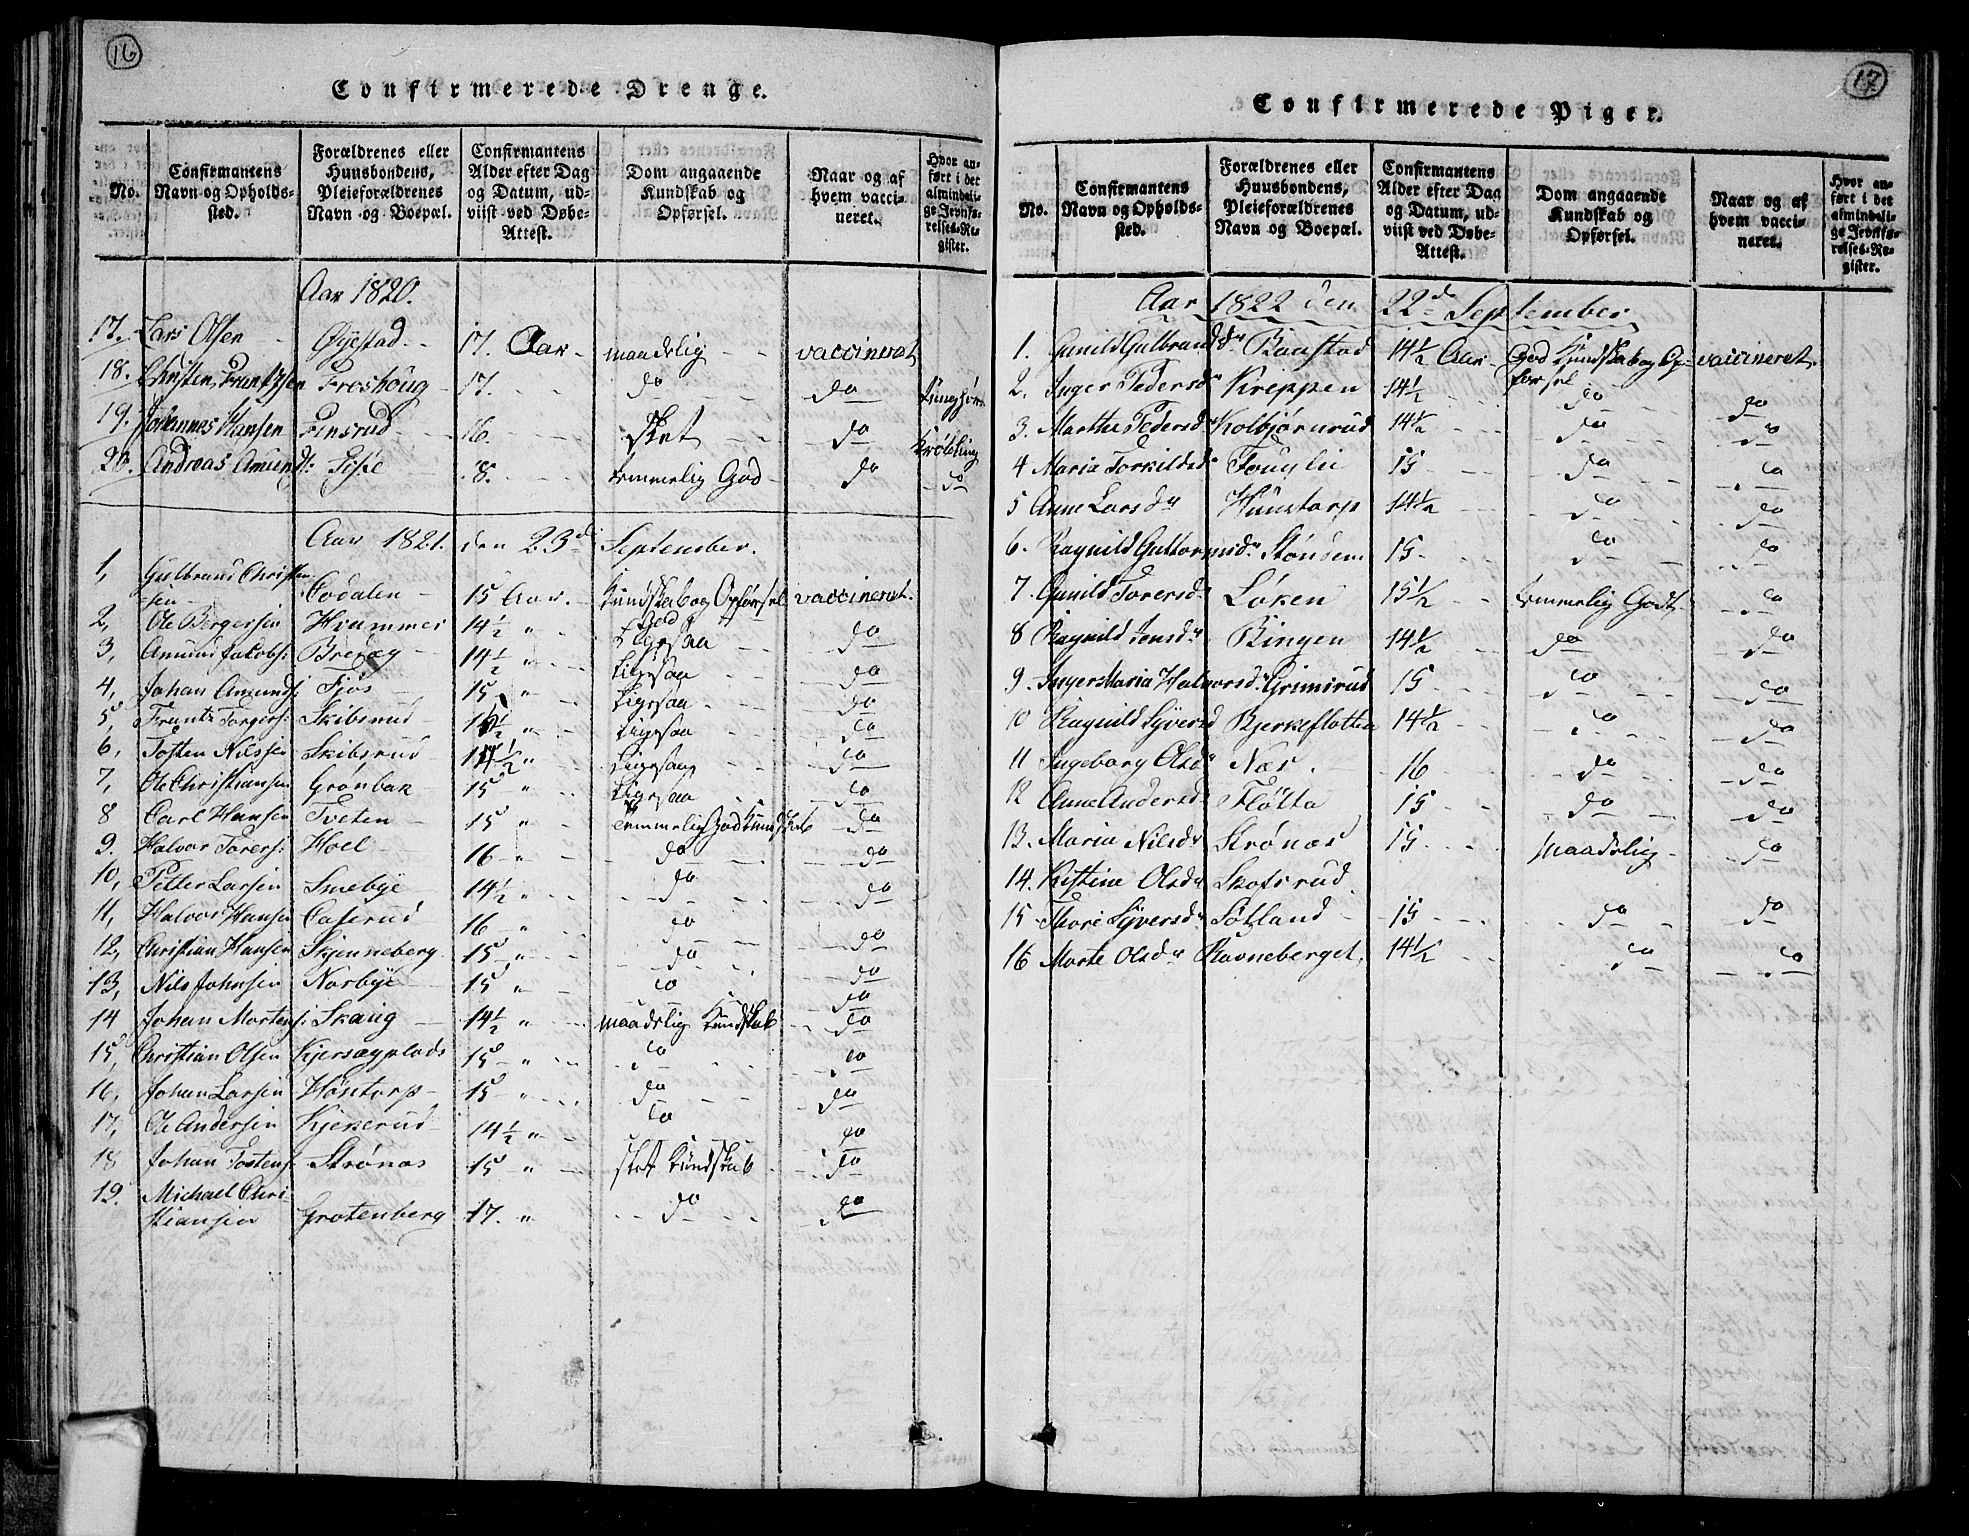 16
Confirmerede Drenge.
No.
Confirmantens Navn og Opholds-sted.
Forældrenes eller Huusbondens, Pleieforældrenes Navn og Boepæl.
Confirmantens Alder efter Dag og Datum, ud-viist ved Døbe-Attest.
Dom angaaende Kundskab og Opførsel.
Naar og af hvem vacci-neret.
Hvor an-ført i det almindeli-ge Jevnfø-relses-Re-gister.
Aar 1820.
17. Lars Olsen Øyestad 17. Aar maadelig vaccineret
18. Christen Frantzsen Froshoug 17. do do
19. Johannes Hansen Finsrud 16. slet do
20. Andreas Amunds: temmelig God do do
Aar 1821. den 23d September.
1, Gulbrand Christen
sen 15 Aar. Kundskab og Opførsel vaccineret.
God
2, Ole Bergersen Hrammer 14½ " Ligesaa do
3, Amund Jakobs: Bredæg 14½ " Ligesaa do
4, Johan Amunds: Fjøs 15 " Ligesaa do
5, Frantz Torgers: Skibsrud ½ " Ligesaa do
6, Tosten Nilssen Skibsrud 14½ " Ligesaa do
7, Ole Christiansen Grønbak 15 " Ligesaa do
8 Carl Hansen Tveten 15 " Temmelig God Kundskab do
9. Halvor Torers: Hoel 16 " do do
10, Petter Larsen Smebye 14½ " do do
11, Halvor Hansen 16 " do do
12, Christian Hansen Skjenneberg 15 " do do
13, Nils Johnsen Norbye 15 " do do
14 Johan Mortens: Skaug 14½ " maadelig Kundskab do
15, Christian Olsen Kjersægplads 15 " do do
16, Johan Larsen Høntorp 15 " do do
17, Ole Andersen Kjekerud 14½ " do do
18 Johan Tostens: Strønas 15 " slet Kundskab do
19. Michael Chri-
stiansen Grotenberg 17. " do do
17
Confirmerede Piger.
No.
Confirmantens Navn og Opholds-sted.
Forældrenes eller Huusbondens, Pleieforældrenes Navn og Boepæl.
Confirmantens Alder efter Dag og Datum, ud-viist ved Døbe-Attest.
Dom angaaende Kundskab og Opførsel.
Naar og af hvem vacci-neret.
Hvor an-ført i det almindeli-ge Jevnfø-relses-Re-gister.
Aar 1822 den 22de September
1. Gunild Gulbrandsdr Baastad 14½ Aar God Kundskab og Op- vaccineret.
førsel
2. Inger Pedersdr Krippen 14½ do do
3. Marthe Pedersdr Kolbjørnrud 14½ do do
4 Maria Torkildsdr Fouglii 15 do do
5 Anne Larsdr Huustorp 14½ do do
6. Ragnild Guttormsdr Stønden 15 do do
7. Gunild Torersdr Løken 15½ temmelig Godt do
8 Ragnild Jensdr Bingen 14½ do do
9. Inger Maria Halvorsdr Grimsrud 15 do do
10 Ragnild Syversd Bjerkeflotten 14½ do do
11 Ingeborg Olsdr Næs. 16 do do
12 Anne Andersdr Fløtta 15 do do
13. Maria Nilsdr Strønas 15 Maadelig do
14. Kistine Olsdr Skofsrud.
15 Thore Syversdr Søtland 15 do do
16 Marte Olsdr Ravneberget, 14½ do do